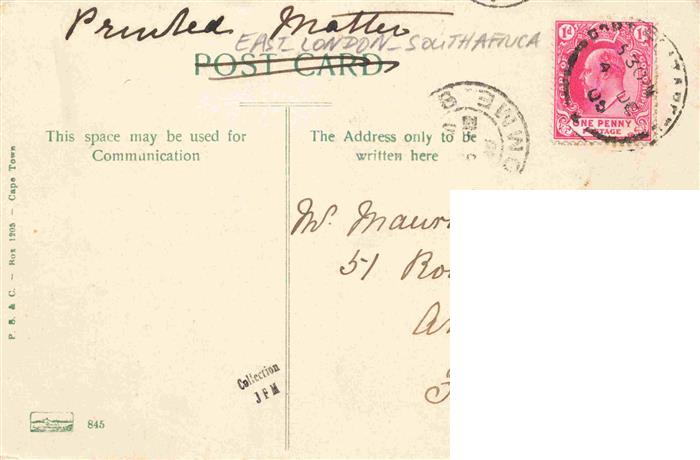 Printed Matter
EAST LONDON - SOUTH AFRICA
POST CARD
This space may be used for
Communication
The Address only to be
written here
1d 1d
ONE PENNY
POSTAGE
Mr.
51
P. S. & C. - Box 1205 - Cape Town
Collection
J F M
845